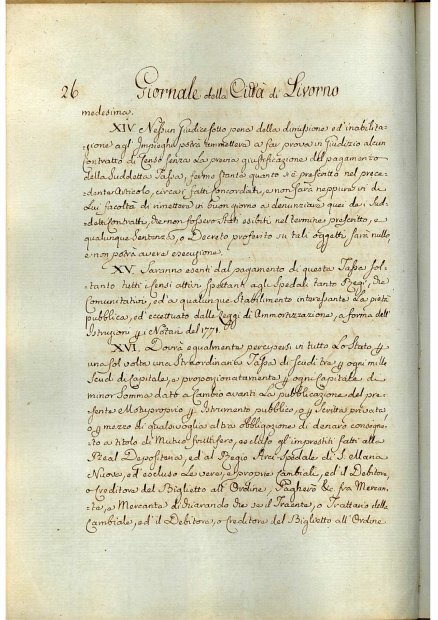 26 Giornale della Città di Livorno
medesima.
XIV. Nessun Giudice sotto pena della dimissione ed' inabilita-
zione agl' Impieghi potrà ammettere a far prova in Giudizio alcun
Contratto di Censo senza la previa giustificazione del pagamento
della Suddetta Tassa, fermo stante quanto si è prescritto nel prece-
dente Articolo, circa i fatti concordati, e non sarà neppure in di
Lui facoltà di rimettere in buon giorno a denunziare quei de i Sud-
detti Contratti, che non fossero stati esibiti nel termine prescritto, e
qualunque Sentenza, o Decreto proferito su tali oggetti sarà nullo
e non potrà avere esecuzione.
XV. Saranno esenti dal pagamento di questa Tassa sol-
tanto tutti i Censi attivi spettanti agli Spedali tanto Regi, che
Comunitativi, ed a qualunque Stabilimento interessante la pietà
pubblica, ed eccettuato dalle Leggi di Ammortizzazione, a forma dell'
Istruzioni p i Notari del 1771.
XVI. Dovrà egualmente percipersi in tutto lo Stato p
una sol volta una Straordinaria Tassa di Scudi tre p ogni mille
Scudi di Capitale, e proporzionatamente p ogni Capitale di
minor Somma dato a Cambio avanti la pubblicazione del pre-
sente Motuproprio p Istrumento pubblico, o p Scritta privata
o p mezzo di qualsivoglia altra obbligazione di denaro consegna-
to a titolo di Mutuo fruttifero, escluso gl' imprestiti fatti alla
Real Depositeria, ed al Regio Arci-Spedale di S. Maria
Nuova, ed escluso le vere, e proprie Cambiali, ed il Debitore,
o Creditore del Biglietto all' Ordine, Pagherò &c. fra Mercan-
te, e Mercante dichiarando che se il Traente, o Trattario della
Cambiale, ed' il Debitore, o Creditore del Biglietto all' Ordine